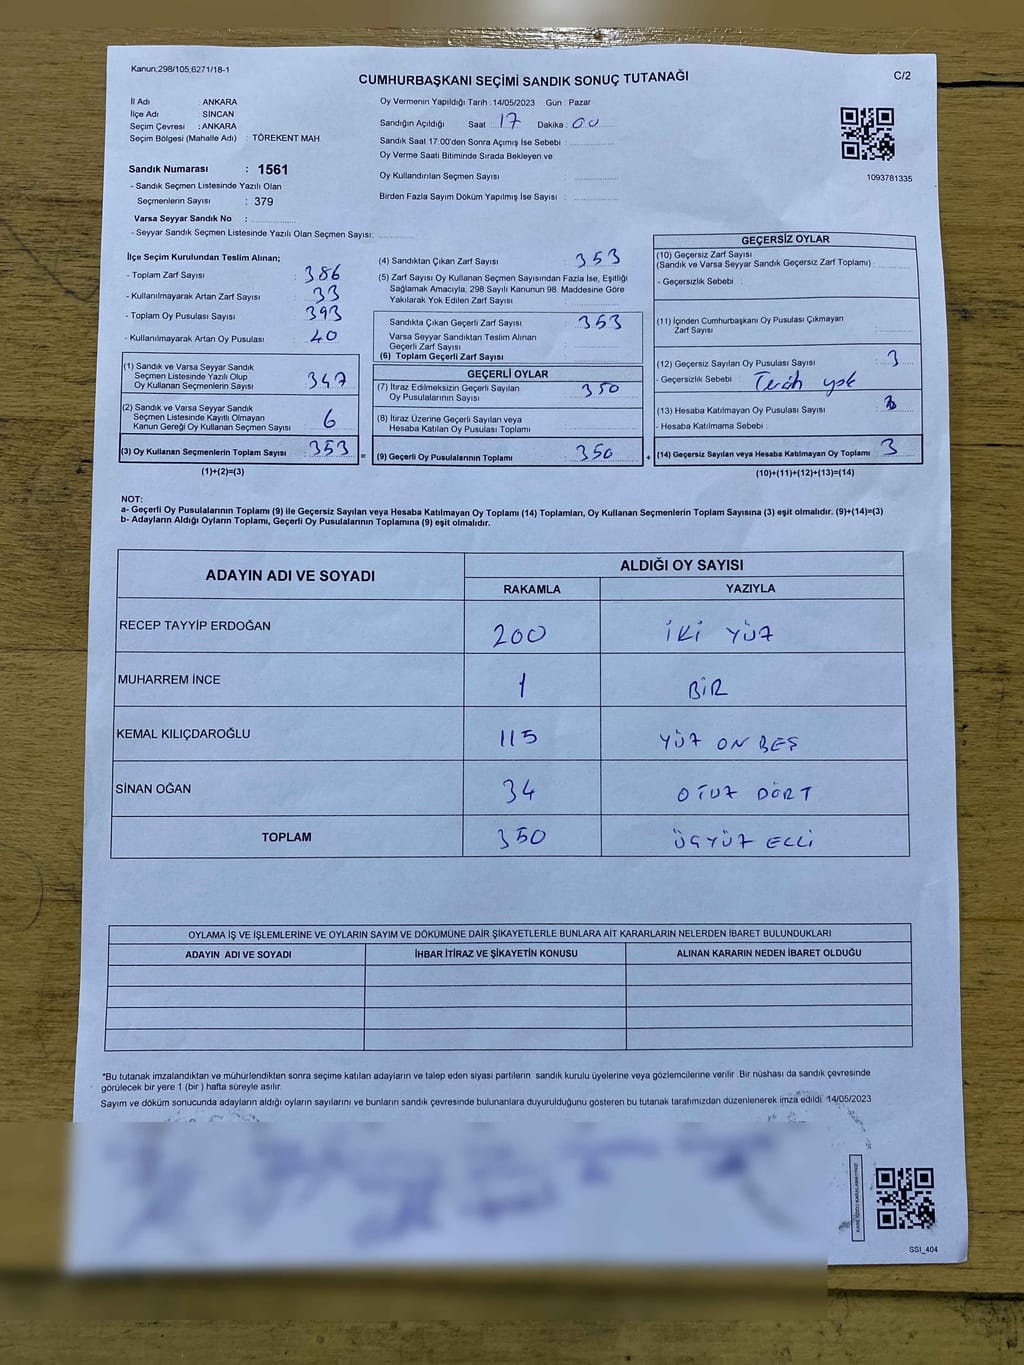 Kanun:298/105,6271/18-1
CUMHURBAŞKANI SEÇİMİ SANDIK SONUÇ TUTANAĞI
C/2
İl Adı : ANKARA
İlçe Adı : SİNCAN
Seçim Çevresi : ANKARA
Seçim Bölgesi (Mahalle Adı) : TÖREKENT MAH
Sandık Numarası : 1561
- Sandık Seçmen Listesinde Yazılı Olan
Seçmenlerin Sayısı : 379
Varsa Seyyar Sandık No :
- Seyyar Sandık Seçmen Listesinde Yazılı Olan Seçmen Sayısı:
Oy Vermenin Yapıldığı Tarih : 14/05/2023 Gün : Pazar
Sandığın Açıldığı Saat : 17 Dakika : 00
Sandık Saat 17:00'den Sonra Açımış İse Sebebi :
Oy Verme Saati Bitiminde Sırada Bekleyen ve
Oy Kullandırılan Seçmen Sayısı :
Birden Fazla Sayım Döküm Yapılmış İse Sayısı :
1093781335
İlçe Seçim Kurulundan Teslim Alınan;
- Toplam Zarf Sayısı : 386
- Kullanılmayarak Artan Zarf Sayısı : 33
- Toplam Oy Pusulası Sayısı : 393
- Kullanılmayarak Artan Oy Pusulası : 40
(1) Sandık ve Varsa Seyyar Sandık
Seçmen Listesinde Yazılı Olup
Oy Kullanan Seçmenlerin Sayısı : 347
(2) Sandık ve Varsa Seyyar Sandık
Seçmen Listesinde Kayıtlı Olmayan
Kanun Gereği Oy Kullanan Seçmen Sayısı : 6
(3) Oy Kullanan Seçmenlerin Toplam Sayısı : 353
(1)+(2)=(3)
(4) Sandıktan Çıkan Zarf Sayısı : 353
(5) Zarf Sayısı Oy Kullanan Seçmen Sayısından Fazla İse, Eşitliği
Sağlamak Amacıyla, 298 Sayılı Kanunun 98. Maddesine Göre
Yakılarak Yok Edilen Zarf Sayısı :
Sandıkta Çıkan Geçerli Zarf Sayısı : 353
Varsa Seyyar Sandıktan Teslim Alınan
Geçerli Zarf Sayısı :
(6) Toplam Geçerli Zarf Sayısı :
GEÇERLİ OYLAR
(7) İtiraz Edilmeksizin Geçerli Sayılan
Oy Pusulalarının Sayısı : 350
(8) İtiraz Üzerine Geçerli Sayılan veya
Hesaba Katılan Oy Pusulası Toplamı :
= (9) Geçerli Oy Pusulalarının Toplamı : 350
GEÇERSİZ OYLAR
(10) Geçersiz Zarf Sayısı
(Sandık ve Varsa Seyyar Sandık Geçersiz Zarf Toplamı) :
- Geçersizlik Sebebi :
(11) İçinden Cumhurbaşkanı Oy Pusulası Çıkmayan
Zarf Sayısı :
(12) Geçersiz Sayılan Oy Pusulası Sayısı : 3
- Geçersizlik Sebebi : Tercih yok
(13) Hesaba Katılmayan Oy Pusulası Sayısı :
- Hesaba Katılmama Sebebi :
+ (14) Geçersiz Sayılan veya Hesaba Katılmayan Oy Toplamı : 3
(10)+(11)+(12)+(13)=(14)
NOT:
a- Geçerli Oy Pusulalarının Toplamı (9) ile Geçersiz Sayılan veya Hesaba Katılmayan Oy Toplamı (14) Toplamları, Oy Kullanan Seçmenlerin Toplam Sayısına (3) eşit olmalıdır. (9)+(14)=(3)
b- Adayların Aldığı Oyların Toplamı, Geçerli Oy Pusulalarının Toplamına (9) eşit olmalıdır.
ADAYIN ADI VE SOYADI ALDIĞI OY SAYISI
RAKAMLA YAZIYLA
RECEP TAYYİP ERDOĞAN 200 İKİ YÜZ
MUHARREM İNCE 1 BİR
KEMAL KILIÇDAROĞLU 115 YÜZ ON BEŞ
SİNAN OĞAN 34 OTUZ DÖRT
TOPLAM 350 ÜÇYÜZ ELLİ
OYLAMA İŞ VE İŞLEMLERİNE VE OYLARIN SAYIM VE DÖKÜMÜNE DAİR ŞİKAYETLERLE BUNLARA AİT KARARLARIN NELERDEN İBARET BULUNDUKLARI
ADAYIN ADI VE SOYADI İHBAR İTİRAZ VE ŞİKAYETİN KONUSU ALINAN KARARIN NEDEN İBARET OLDUĞU
*Bu tutanak imzalandıktan ve mühürlendikten sonra seçime katılan adayların ve talep eden siyasi partilerin sandık kurulu üyelerine veya gözlemcilerine verilir .Bir nüshası da sandık çevresinde
görülecek bir yere 1 (bir ) hafta süreyle asılır.
Sayım ve döküm sonucunda adayların aldığı oyların sayılarını ve bunların sandık çevresinde bulunanlara duyurulduğunu gösteren bu tutanak tarafımızdan düzenlenerek imza edildi. 14/05/2023
SSİ_404